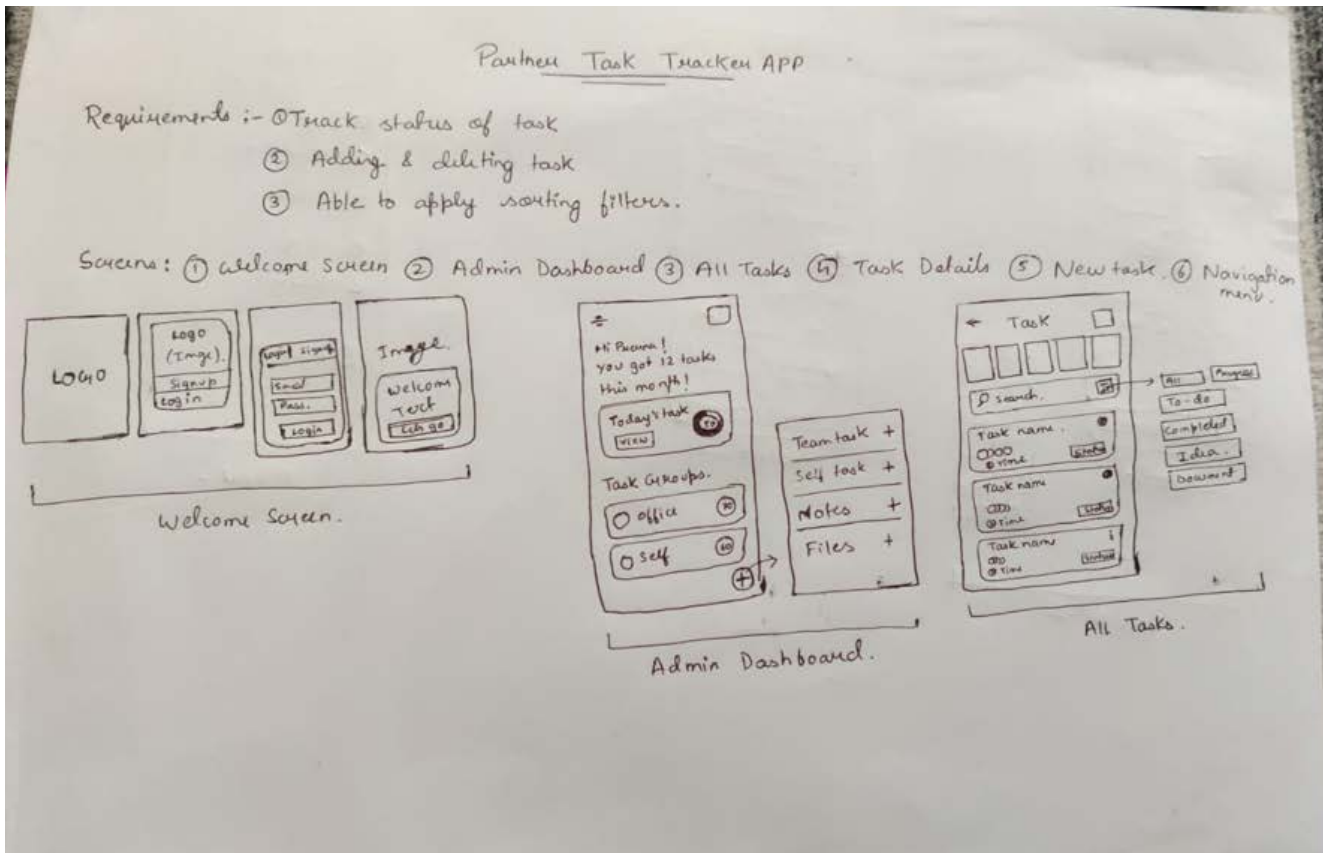 Partner Task Tracker APP
Requirements :- ① Track status of task
② Adding & deliting task
③ Able to apply sorting filters.
Screens: ① Welcome Screen ② Admin Dashboard ③ All Tasks ④ Task Details ⑤ New task. ⑥ Navigation menu.
LOGO
Logo
(Imge).
Signup
Login
Login Signup
Email
Pass.
Login
Image.
Welcom
Text
Welcome Screen.
Hi
you got 12 tasks
this month!
Today's task
View
70
Task Groups.
Office
70
Self
60
+
Team task +
Self task +
Notes +
Files +
Admin Dashboard.
← Task
Search.
Task name.
Time
Status
Task name
Time
Status
Task name
Time
Status
All
Progress
To-do
Completed
Idea.
All Tasks.